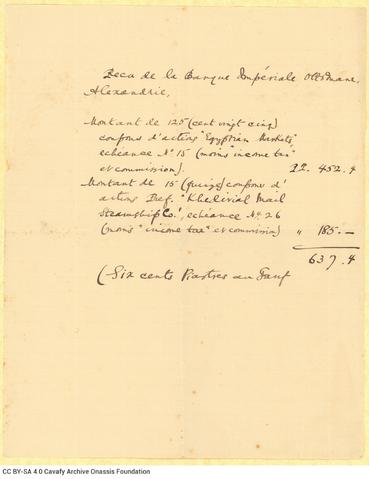 Recu de la Banque Impériale Ottomane,
Alexandrie,
Montant de 125 (cent vingt cinq)
coupons d'actions "Egyptian Markets",
echéance No 15 (moins "income tax"
et commission). P.T. 452.4
Montant de 15 (quinze) coupons d'
actions Pref. "Khedivial Mail
Steamship Co.", echéance No. 26
(moins "income tax" et commission) " 185.—
637.4
(Six cents Piastres au Tarif
CC BY-SA 4.0 Cavafy Archive Onassis Foundation